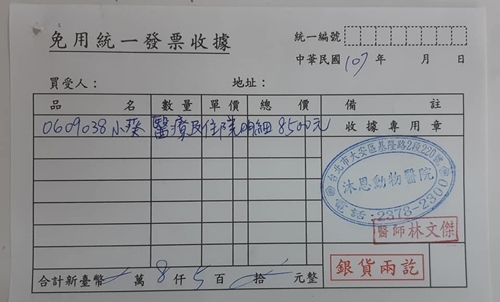 免用統一發票收據
統一編號
中華民國107年 月 日
買受人： 地址：
品名 數量 單價 總價 備註
0609038小璞 醫療及住院明細 8500元
收據專用章
台北市大安區基隆路2段220號
沐恩動物醫院
電話：2378-2300
醫師林文傑
銀貨兩訖
合計新臺幣 萬8仟5百 拾 元整